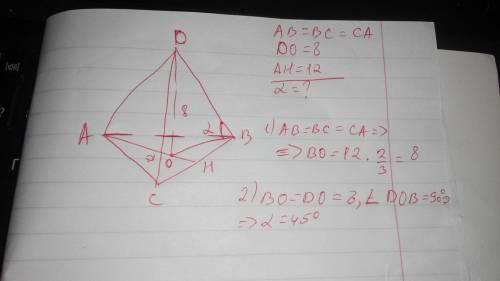 D
8
A
α
B
α
O
H
C
AB=BC=CA
DO=8
AH=12
α=?
1) AB=BC=CA=>
=> BO=12·2/3=8
2) BO=DO=8, ∠DOB=90°=>
=> α=45°